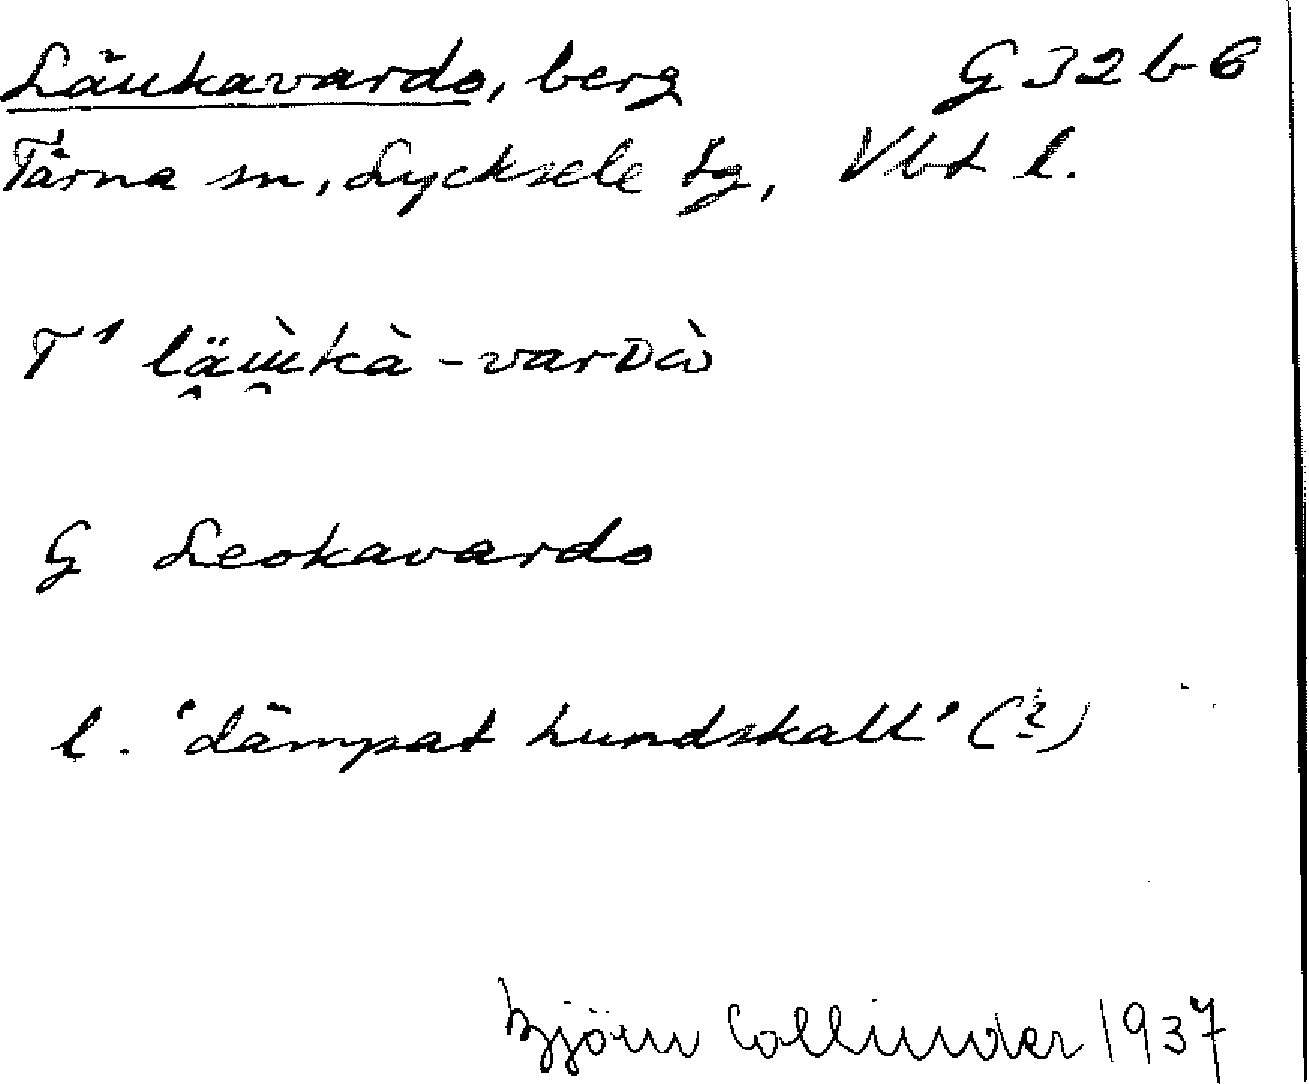 Läukavardo, berg G 32 b C
Tärna sn, Lycksele tg, Vbt l.
T¹ -varDὼ
G Leokavardo
l. 'dämpat hundskall' (?)
Björn Collinder 1937